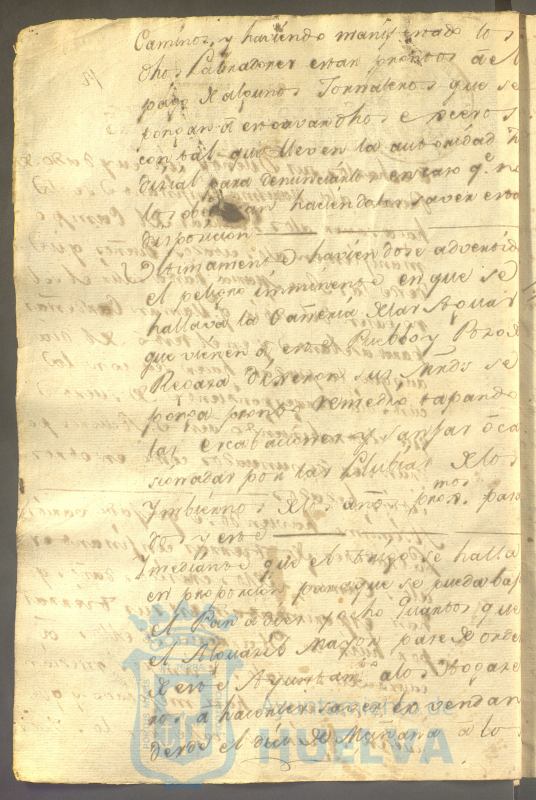 Caminos, y haviendo manifestado los
dhos Labradores estar prontos á el
pago de algunos Jornaleros que se
pongan á
con tal que lleven la autoridad Ju
dicial para denunciarlos en caso q.e no
los haciendoles saver esta
disposicion
Ultimamente haviendose advertido
el peligro imminente en que se
hallava la Cañeria de las Aguas
que vienen á este Pueblo y Pozo de
sus mds se
ponga pronto remedio tapando
las escabaciones y Zanjas oca
sionadas por las Llubias de los
Imbiernos de los años prox.mos pasa
dos y este
Y mediante que el trigo se halla
en proporcion para que se pueda baj
el Pan á diez y ocho Quartos que
el Alguacil Mayor pase de orden
de este Ayuntam.to a los Atgaze
ros á hacerles saver lo vendan
desde el dia de Mañana á lo
HUELVA